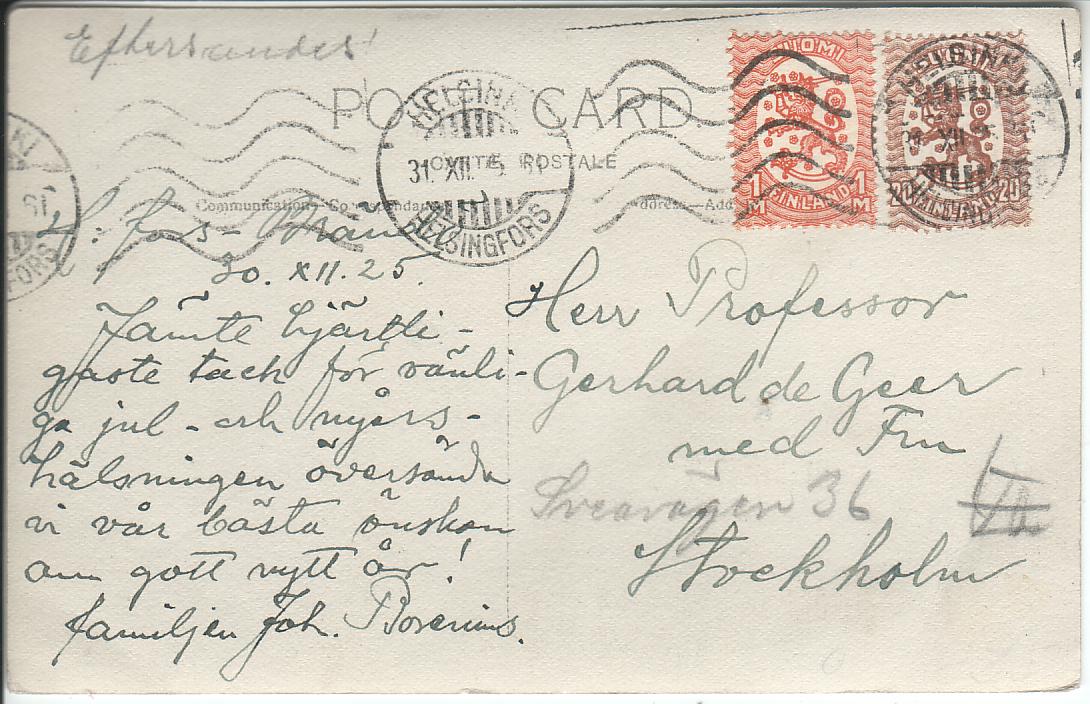 Eftersändes!
POST CARD.
CARTE POSTALE
HELSINKI
31. XII. 25
HELSINGFORS
SUOMI
1 M 1 M
FINLAND
20 20
FINLAND
HELSINKI
XII. 25
KI
FORS
Communication—Correspondance
Address—Adresse
H:fors - Brändö
30. XII. 25.
Jämte hjärtli-
gaste tack för vänli-
ga jul- och nyårs-
hälsningen översända
vi vår bästa önskan
om gott nytt år!
familjen Joh. Borenius.
Herr Professor
Gerhard de Geer
med Fru
Sveavägen 36
Stockholm